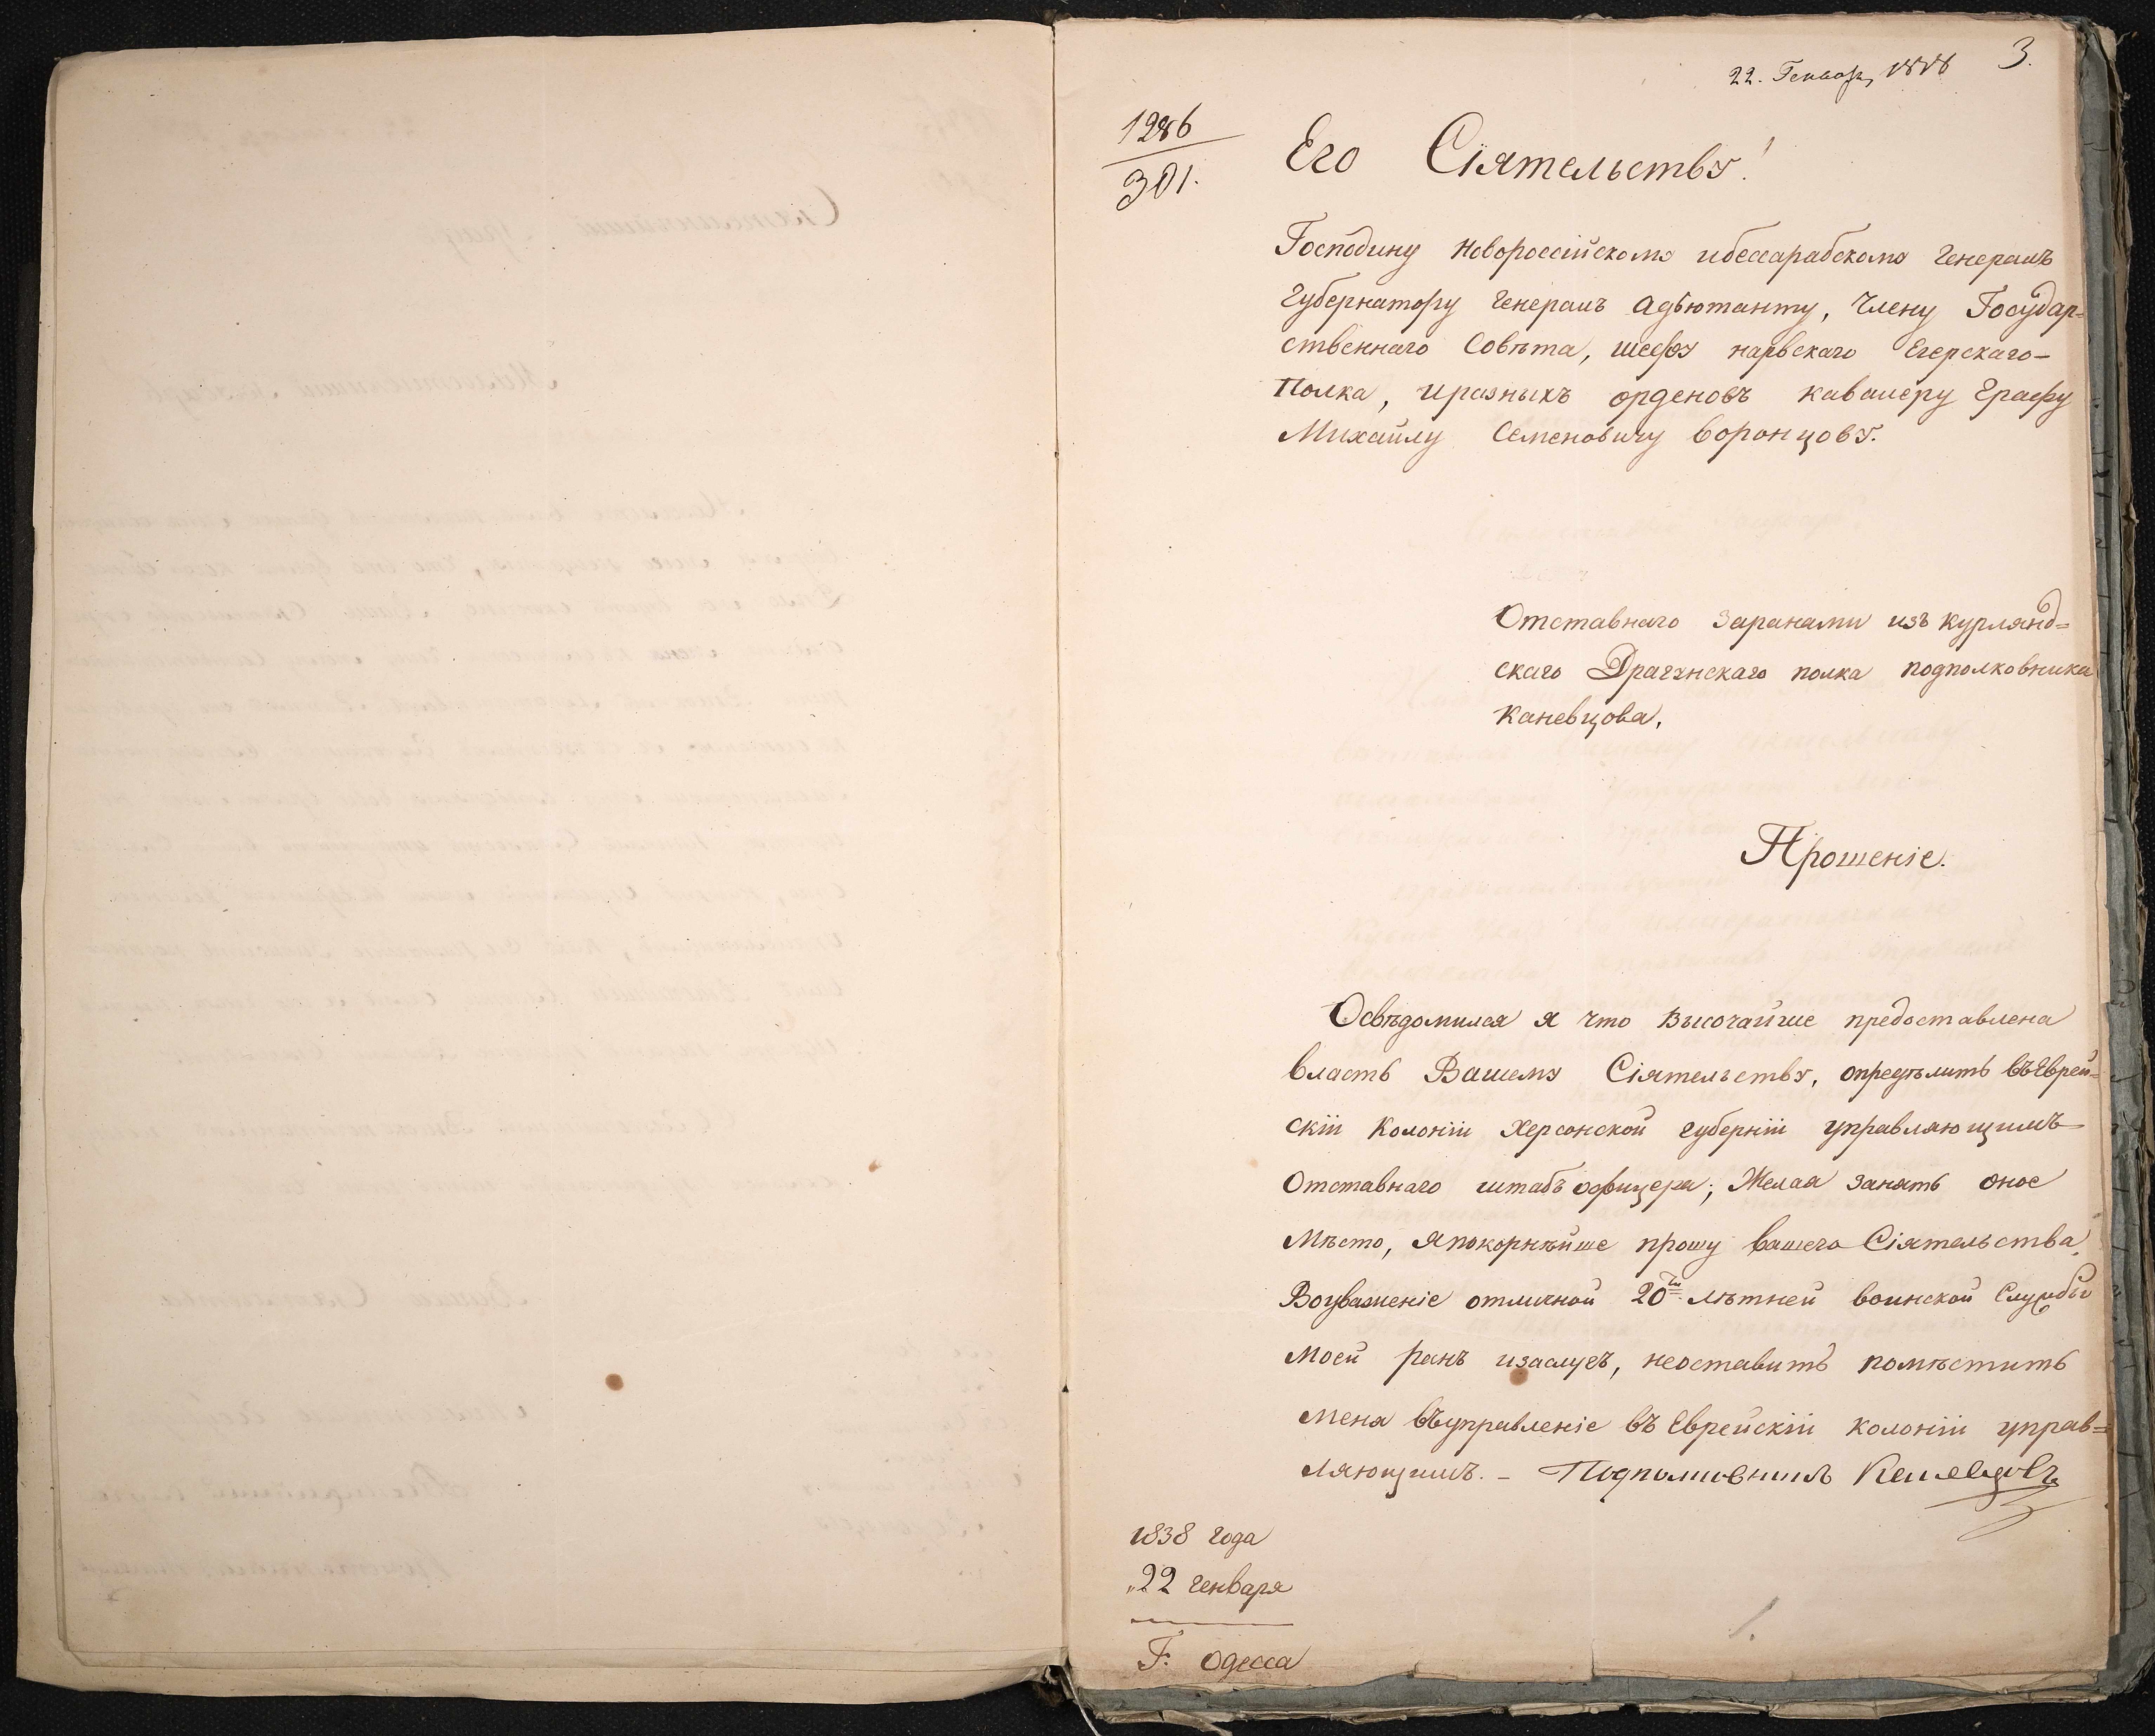 22. Генваря 1838
3.
1286
301.
Его Сіятельству!
Господину Новороссійскому ибессарабскому Генералъ
Губернатору Генералъ Адъютанту, Члену Государ=
ственнаго Совѣта, шефу нарвскаго Егерскаго-
Полка, иразныхъ орденовъ кавалеру Графу
Михаилу Семеновичу Воронцову.
Отставнаго заранами изъ курлянд=
скаго Драгунскаго полка подполковника
Каневцова,
Прошеніе.
Освѣдомился я что Высочайше предоставлена
власть Вашему Сіятельству, опредѣлить въЕврей=
скіи Колоніи Херсонской губерніи управляющимъ
Отставнаго штабъ офицера; Желая занять оное
Мѣсто, япокорнѣйше прошу вашего Сіятельства,
Воуваженіе отличной 20ти лѣтней воинской Службы
Моей ранъ изаслугъ, неоставить помѣстить
меня въуправленіе въ Еврейскіи колоніи управ=
ляющимъ. - Подполковникъ Каневцовъ
1838 года
"22 генваря
Г: Одесса
1.